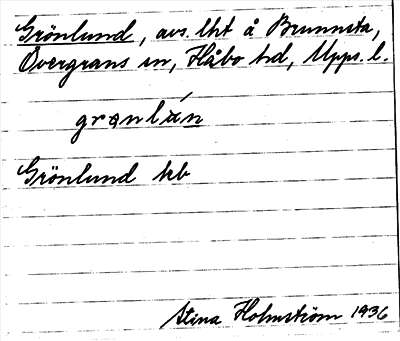 Grönlund, avs. lht å Brunnsta,
Övergrans sn, Håbo hd, Upps. l.
Grönlund krb
Stina Holmström 1936